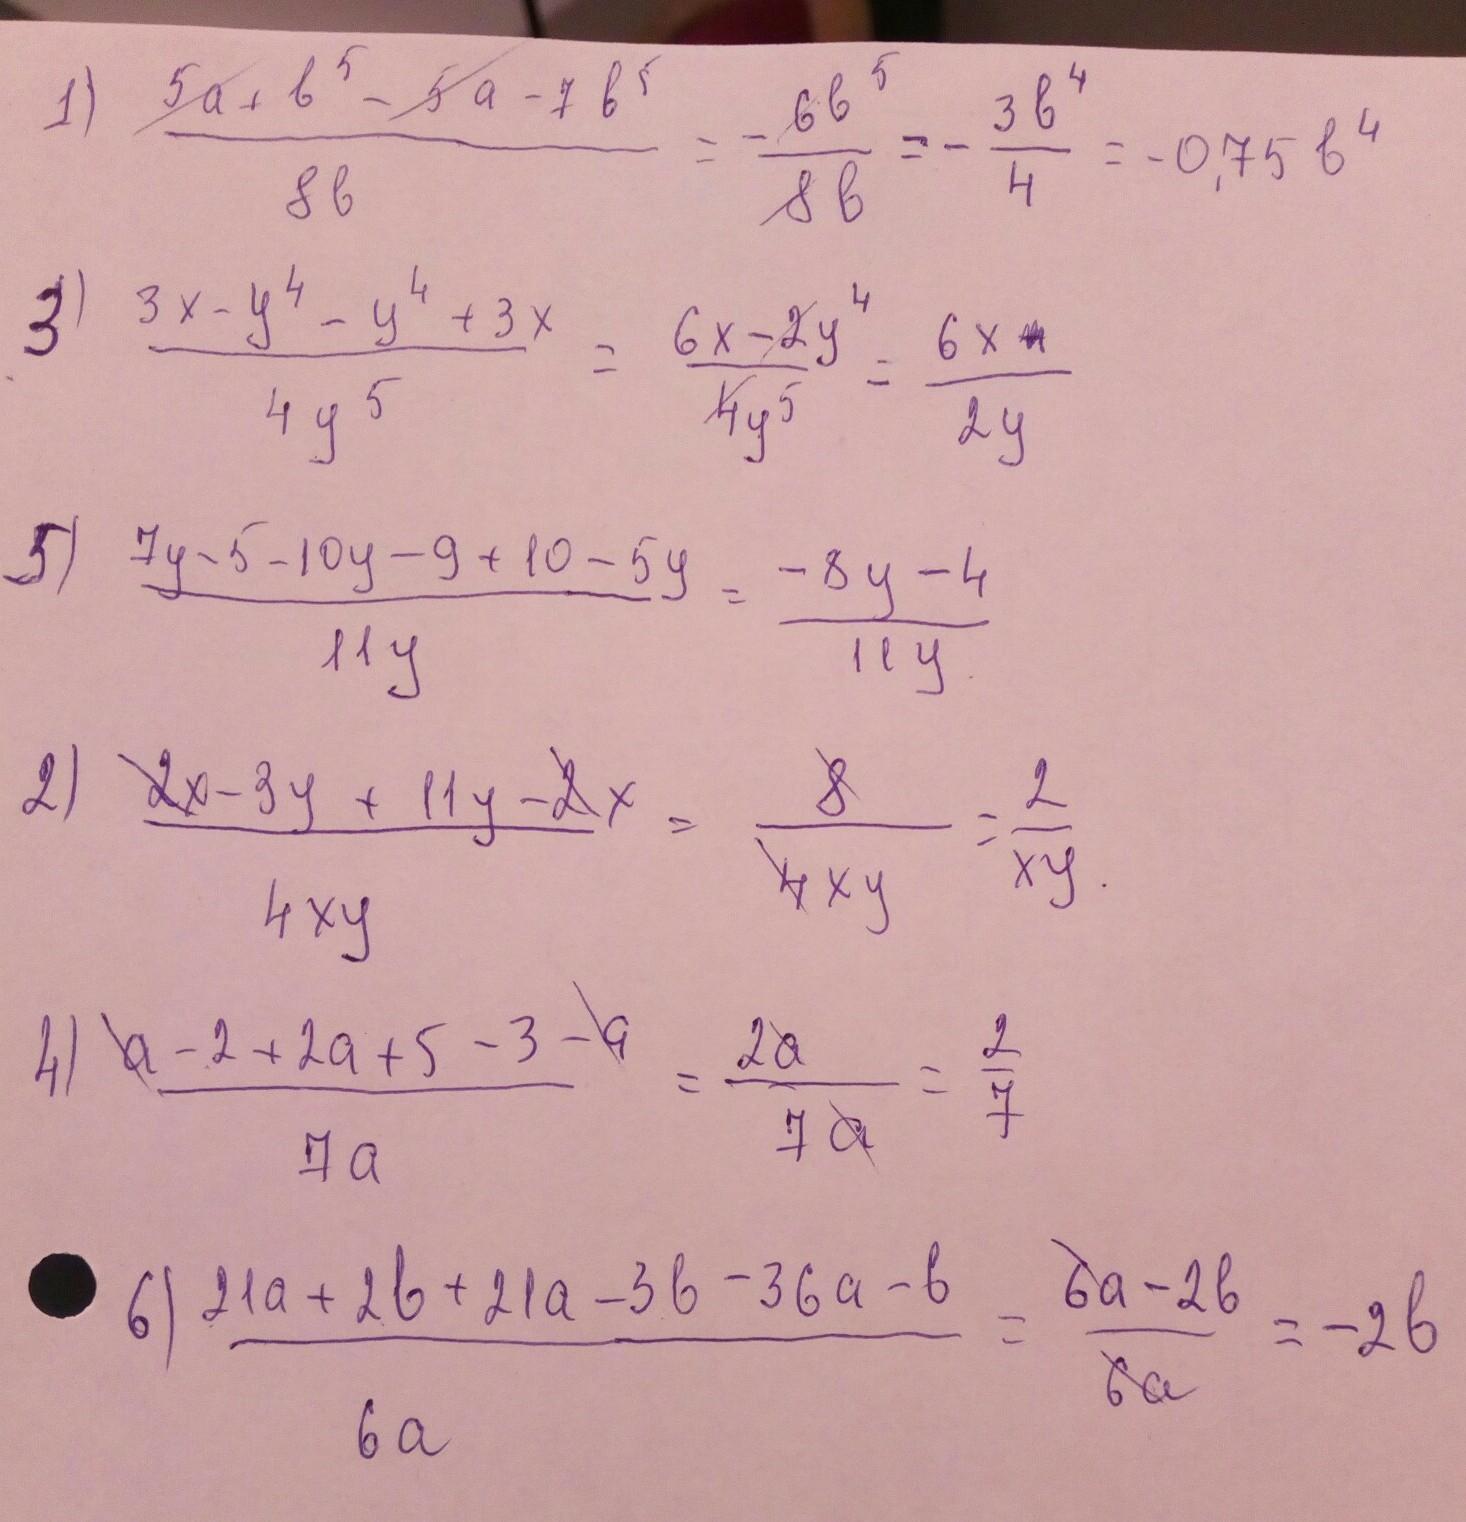 1) (5a + b⁵ - 5a - 7b⁵)/(8b) = -6b⁵/(8b) = -3b⁴/4 = -0,75b⁴
3) (3x - y⁴ - y⁴ + 3x)/(4y⁵) = (6x - 2y⁴)/(4y⁵) = 6x/(2y)
5) (7y - 5 - 10y - 9 + 10 - 5y)/(11y) = (-8y - 4)/(11y).
2) (2x - 3y + 11y - 2x)/(4xy) = 8/(4xy) = 2/(xy).
4) (a - 2 + 2a + 5 - 3 - a)/(7a) = 2a/(7a) = 2/7
6) (21a + 2b + 21a - 3b - 36a - b)/(6a) = (6a - 2b)/(6a) = -2b